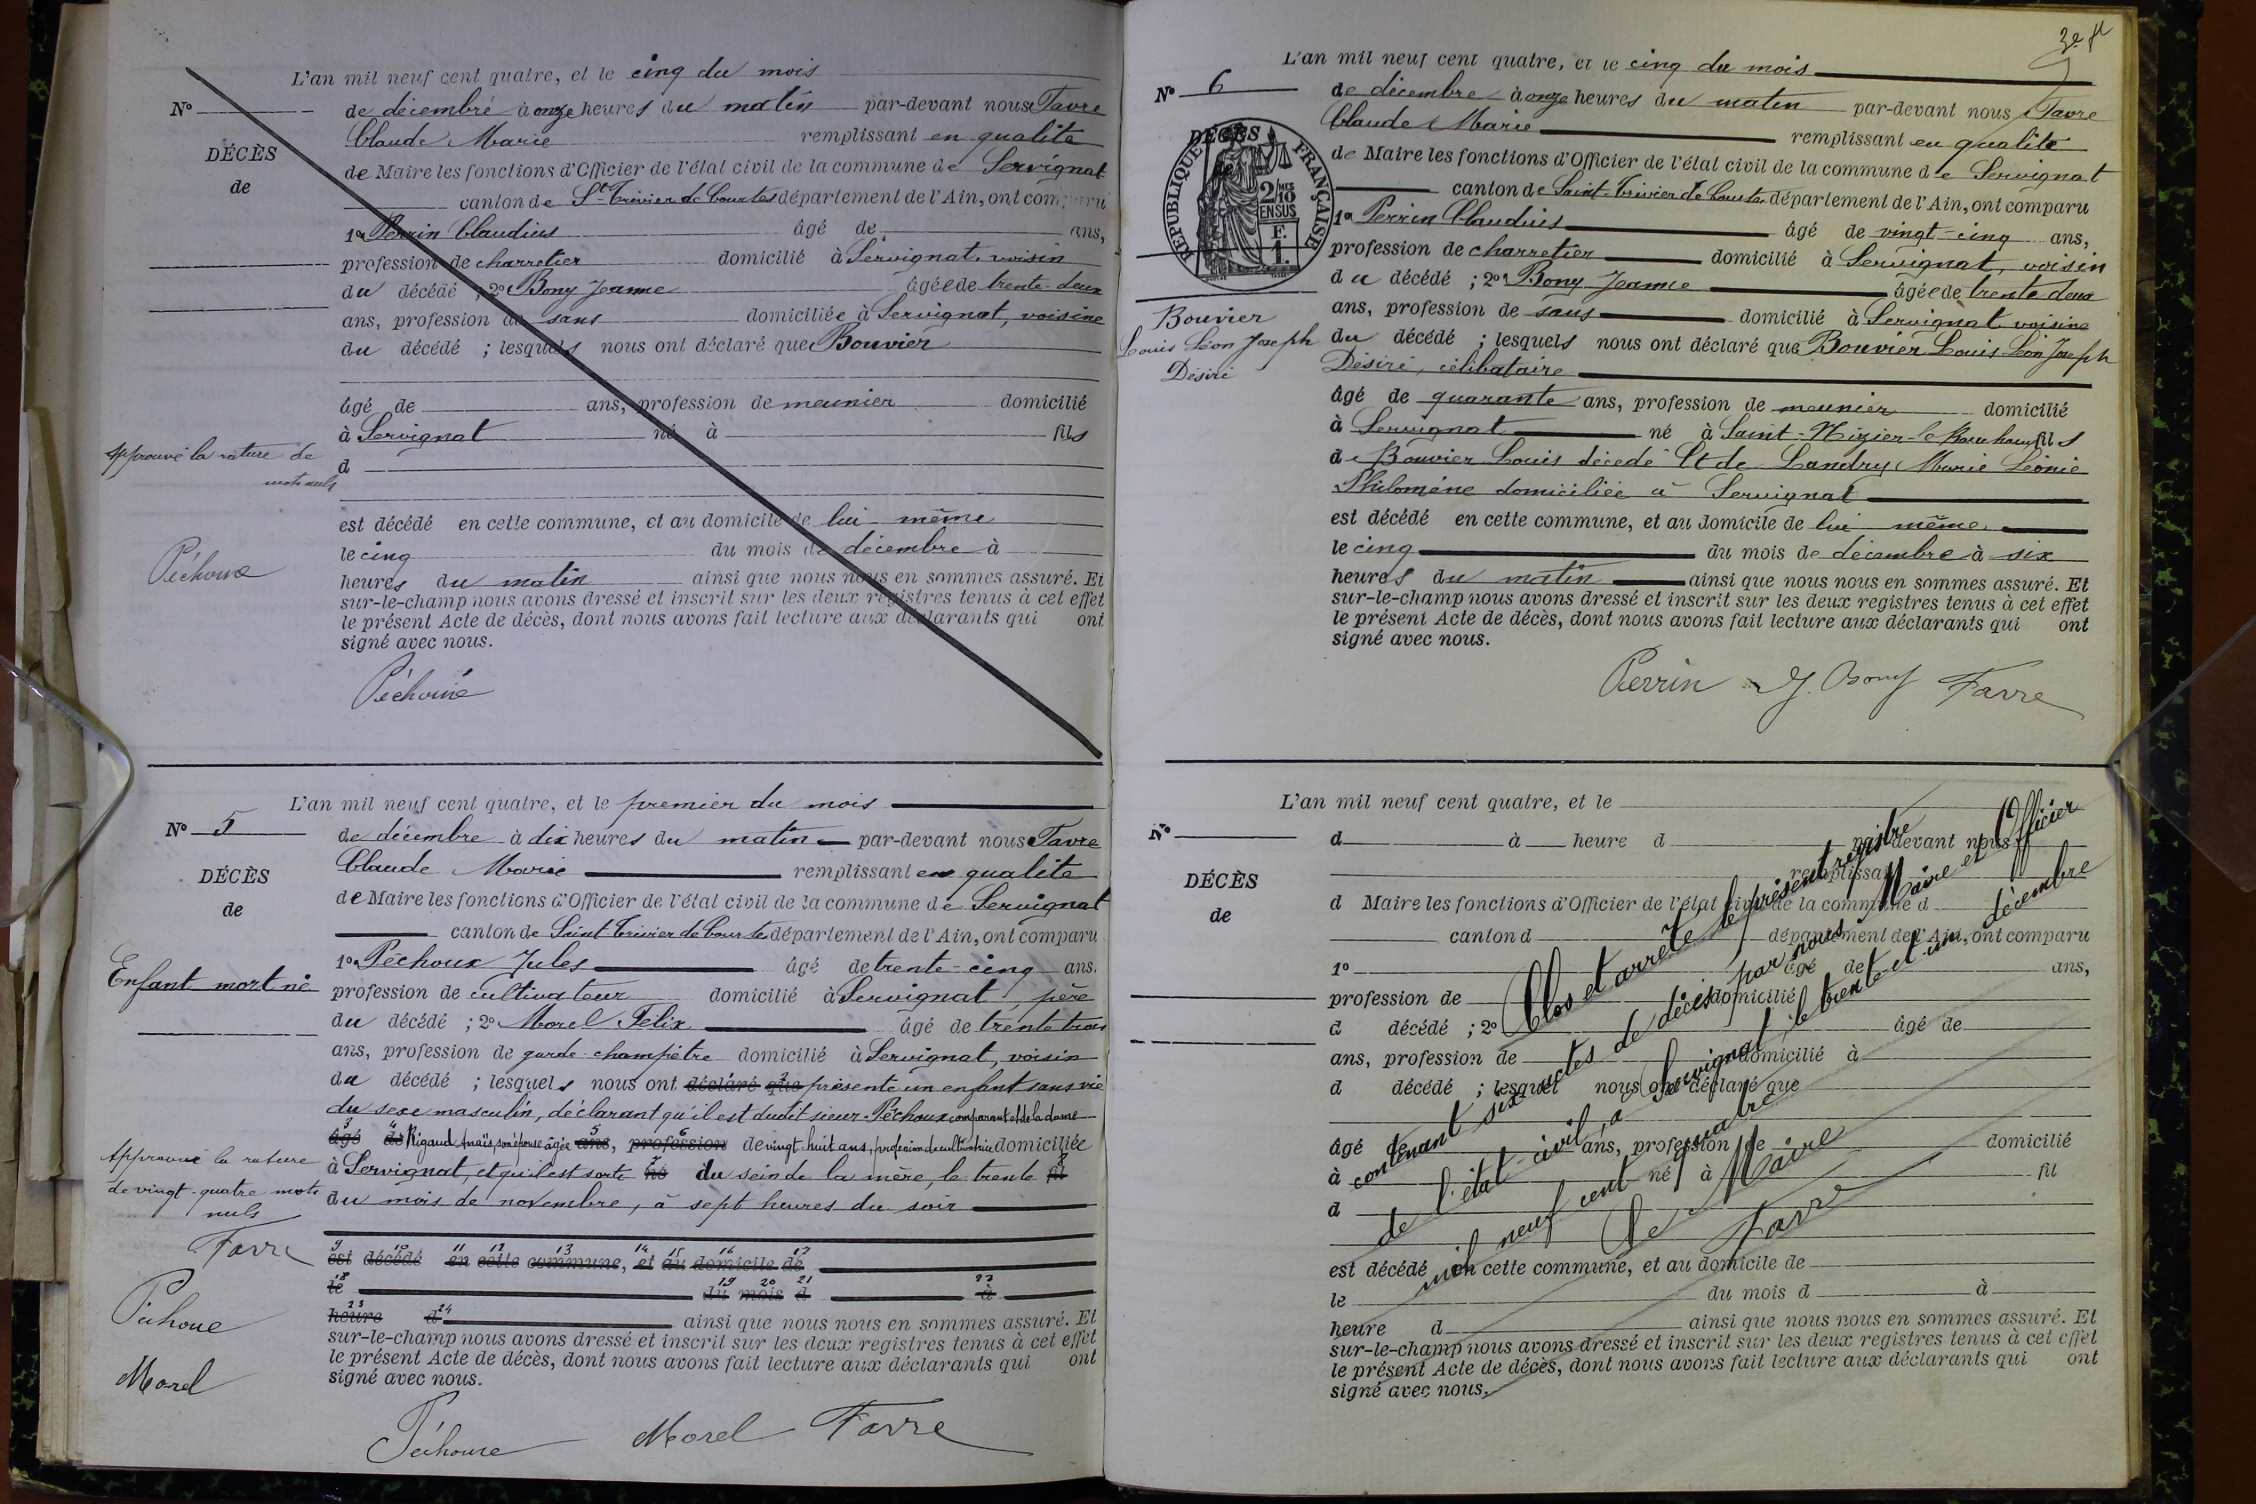 L'an mil neuf cent quatre, et le cinq du mois
No
de décembre à onze heures du matin par-devant nous Favre
DÉCÈS
Claude Marie remplissant en qualité
de
de Maire les fonctions d'Officier de l'état civil de la commune de Servignat
canton de St Trivier de Courtes département de l'Ain, ont comparu
1o Perrin Claudius âgé de ans,
profession de charretier domicilié à Servignat, voisin
du décédé ; 2o Bony Jeanne âgée de trente-deux
ans, profession de sans domiciliée à Servignat, voisine
du décédé ; lesquels nous ont déclaré que Bouvier
âgé de ans, profession de meunier domicilié
à Servignat né à fils
Approuvé la rature de
mots nuls
d
est décédé en cette commune, et au domicile de lui même
le cinq du mois de décembre à
heures du matin ainsi que nous nous en sommes assuré. Et
sur-le-champ nous avons dressé et inscrit sur les deux registres tenus à cet effet
le présent Acte de décès, dont nous avons fait lecture aux déclarants qui ont
signé avec nous.
Péchoux
Péchoux
L'an mil neuf cent quatre, et le premier du mois
No 5
de décembre à dix heures du matin par-devant nous Favre
DÉCÈS
Claude Marie remplissant en qualité
de
de Maire les fonctions d'Officier de l'état civil de la commune de Servignat
canton de Saint-Trivier de Courtes département de l'Ain, ont comparu
Enfant mort né
1o Péchoux Jules âgé de trente-cinq ans.
profession de cultivateur domicilié à Servignat, père
du décédé ; 2o Morel Félix âgé de trente trois
ans, profession de garde-champêtre domicilié à Servignat, voisin
du décédé ; lesquels nous ont déclaré que présenté un enfant sans vie
du sexe masculin, déclarant qu'il est dudit sieur Péchoux comparant et de la dame
âgé de Rigaud Anaïs, son épouse âgée ans, profession de vingt huit ans, profession de cultivatrice domiciliée
à Servignat, et qu'il est sorti né du sein de la mère, le trente fil
du mois de novembre, à sept heures du soir
Approuvé la rature
de vingt-quatre mots
nuls
Favre
Péchoux
Morel
9 10 11 12 13 14 15 16 17
est décédé en cette commune, et au domicile de
18 19 20 21 22
le du mois d à
23 24
heure d ainsi que nous nous en sommes assuré. Et
sur-le-champ nous avons dressé et inscrit sur les deux registres tenus à cet effet
le présent Acte de décès, dont nous avons fait lecture aux déclarants qui ont
signé avec nous.
Péchoux Morel Favre
L'an mil neuf cent quatre, et le cinq du mois
No 6
de décembre à onze heures du matin par-devant nous Favre
DÉCÈS
Claude Marie remplissant en qualité
de Maire les fonctions d'Officier de l'état civil de la commune de Servignat
canton de Saint-Trivier de Courtes département de l'Ain, ont comparu
RÉPUBLIQUE FRANÇAISE
2/10 EN SUS
F. 1.
1o Perrin Claudius âgé de vingt-cinq ans,
profession de charretier domicilié à Servignat, voisin
du décédé ; 2o Bony Jeanne âgée de trente deux
ans, profession de sans domicilié à Servignat voisine
Bouvier
Louis Léon Joseph
Désiré
du décédé ; lesquels nous ont déclaré que Bouvier Louis Léon Joseph
Désiré, célibataire
âgé de quarante ans, profession de meunier domicilié
à Servignat né à Saint-Nizier-le-Bouchoux fils
de Bouvier Louis décédé Et de Landry Marie Léonie
Philomène domiciliée à Servignat
est décédé en cette commune, et au domicile de lui même
le cinq du mois de décembre à six
heures du matin ainsi que nous nous en sommes assuré. Et
sur-le-champ nous avons dressé et inscrit sur les deux registres tenus à cet effet
le présent Acte de décès, dont nous avons fait lecture aux déclarants qui ont
signé avec nous.
Perrin J. Bony Favre
L'an mil neuf cent quatre, et le
No
d à heure d par-devant nous
DÉCÈS
remplissant
de
d Maire les fonctions d'Officier de l'état civil de la commune d
canton d département de l'Ain, ont comparu
1o âgé de ans,
profession de domicilié
d décédé ; 2o âgé de
ans, profession de domicilié à
d décédé ; lesquel nous ont déclaré que
âgé de ans, profession de domicilié
à né à fil
d
est décédé en cette commune, et au domicile de
le du mois d à
heure d ainsi que nous nous en sommes assuré. Et
sur-le-champ nous avons dressé et inscrit sur les deux registres tenus à cet effet
le présent Acte de décès, dont nous avons fait lecture aux déclarants qui ont
signé avec nous.
Clos et arrêté le présent registre
contenant six actes de décès par nous Maire et Officier
de l'état-civil, à Servignat, le trente et un décembre
mil neuf cent quatre
Le Maire
Favre